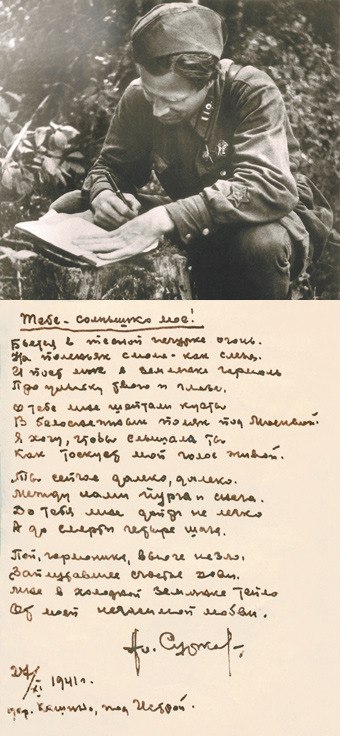 Тебе - солнышко мое!
Бьется в тесной печурке огонь.
На поленьях смола - как слеза.
И поет мне в землянке гармонь
Про улыбку твою и глаза.
О тебе мне шептали кусты
В белоснежных полях под Москвой.
Я хочу, чтобы слышала ты
Как тоскует мой голос живой.
Ты сейчас далеко, далеко.
Между нами пурга и снега.
До тебя мне дойти не легко
А до смерти четыре шага.
Пой, гармоника, вьюге назло.
Заплутавшее счастье зови.
Мне в холодной землянке тепло
От моей негасимой любви.
Ал. Сурков
27/XI 1941г.
дер. Кашино, под Истрой.